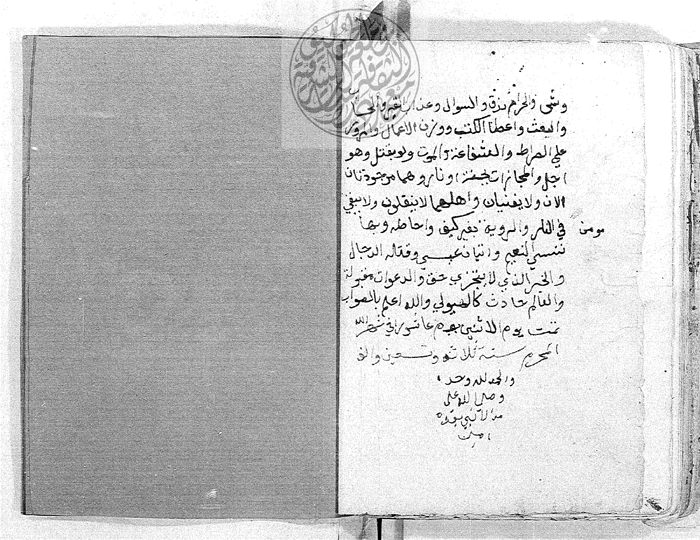 وشئ والحرام رزق والسوال وعذاب القبر والحساب
والبعث واعطا الكتب ووزن الاعمال والمرور
علي الصراط والشفاعة والموت ولو بقتل وهو
اجل والمجازات بجنة او نار وهما موجودتان
الان ولا يفنيان واهلهما لا ينقلون ولا يبقي
في النار والروية بغير كيف واحاطة وبها
مومن
ننسي النعيم واتيان عيسي وقتاله الدجال
والجزء الذي لا يتجزي حق والدعوات مقبولة
والعالم حادث كالهيولي والله اعلم بالصواب
تمت يوم الاثنين عاشورا في شهر الله
المحرم سنة ثلاثة وتسعين والف
والحمد لله وحده
وصلى الله على
من لا نبي بعده
امين